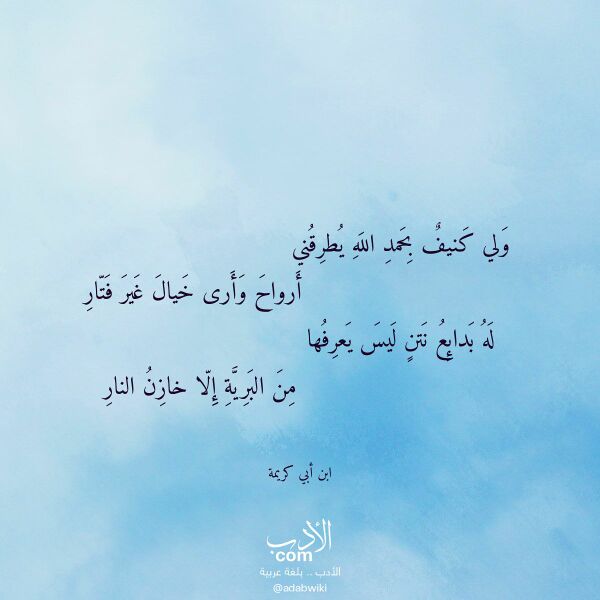 وَلي كَنيفٌ بِحَمدِ اللَهِ يُطرِقُني
أَرواحَ وَأَرى خَيالَ غَيرَ فَتّارِ
لَهُ بَدائِعُ نَتنٍ لَيسَ يَعرِفُها
مِنَ البَرِيَّةِ إِلّا خازِنُ النارِ
ابن أبي كريمة
الأدب
com
الأدب .. بلغة عربية
@adabwiki